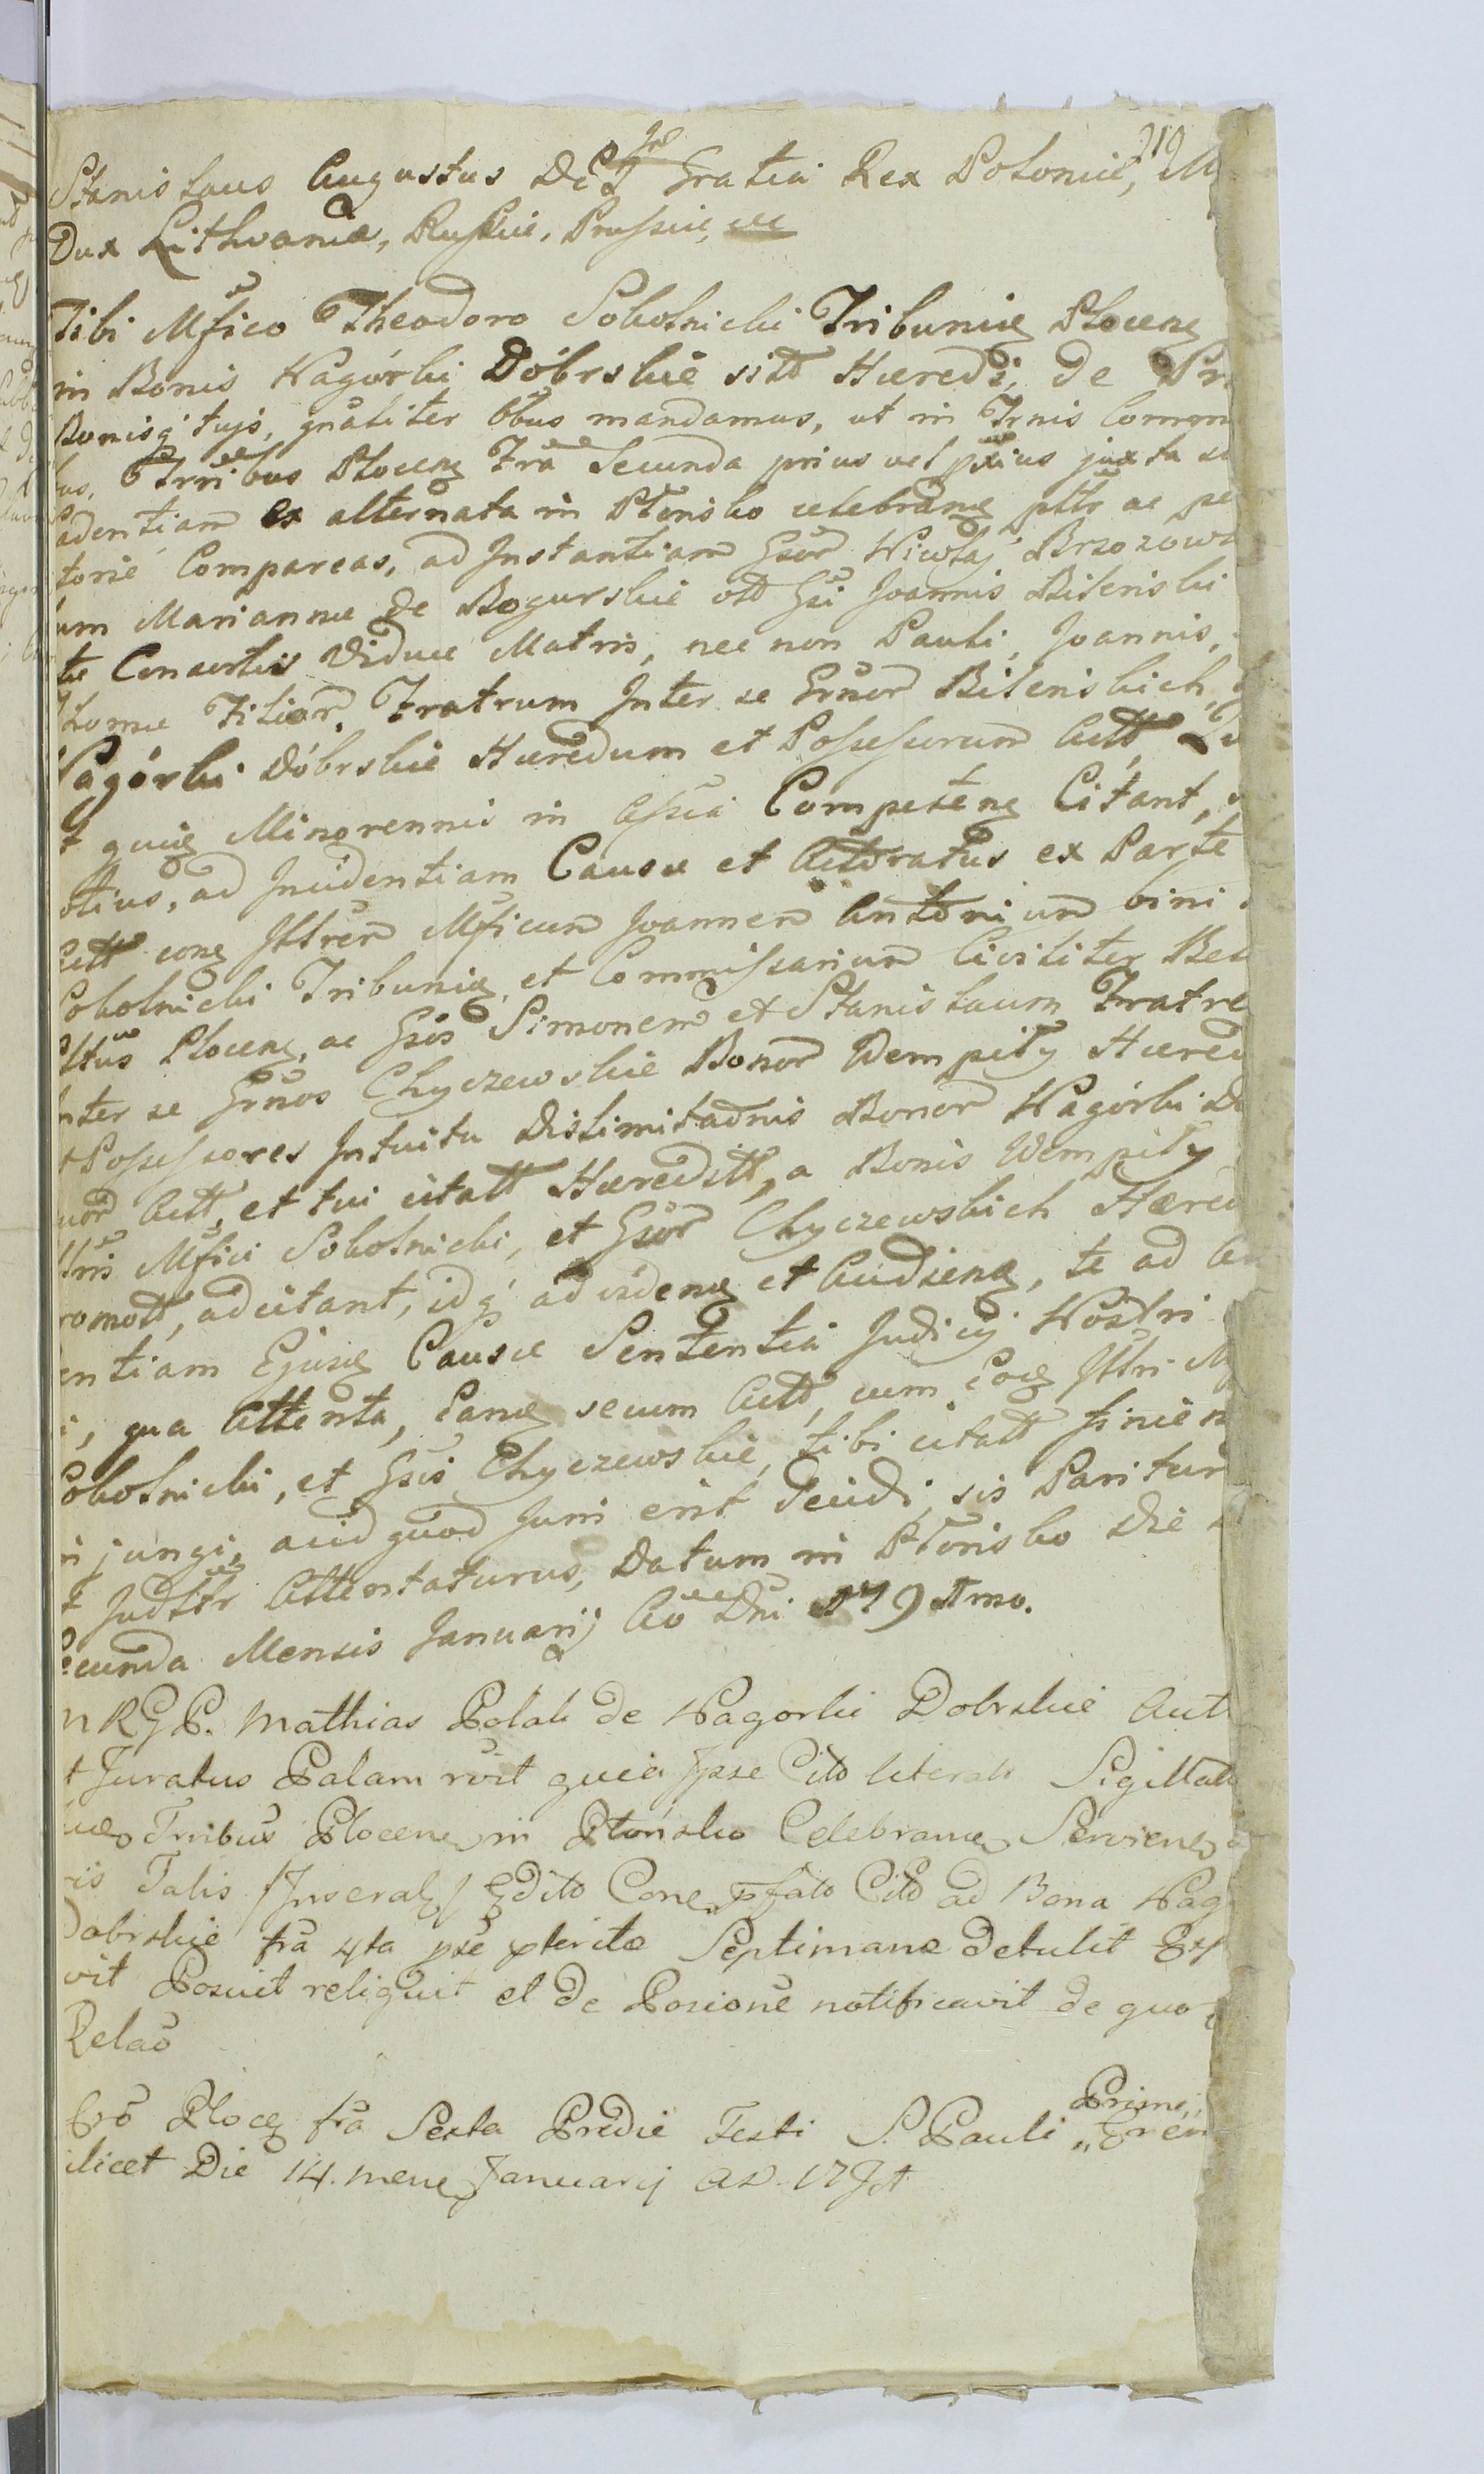 219
Stanislaus Augustus Dei Gratia Rex Poloniæ, M
Dux Lithvaniæ, Russiæ, Prussiæ,
Tibi Mfico Theodoro Sokolnicki Tribunieg Ploceng
in Bonis Nagórki Dóbrskie sitt Hæredi, de
Bonisq tujs, gnaliter obus mandamus, ut in Trnis
Trribus Ploceng fra Secunda prius vel pxius juxta
adentiam ex alternata in Plonsko celebrang pttr ac pe
torie Compareas, ad Instantiam Gsor Nicolaj Brzozows
um Mariannæ de Bogurskie ott Gsi Joannis Bilenski
tæ Consortis Viduæ Matris, nec non Pauli, Joannis,
Thomæ Filior. Fratrum Inter se Grnor Bilenskich,
Nagórki Dóbrskie Hæredum et Possessorum Actt,
t quig Minorennis in Assia Competeng Citant,
otius, ad Incidentiam Causæ et Actoratus ex Parte
actt cong Illrem Mficum Joannem Antonium bini
Sokolnicki Tribunig et Commissarium Civiliter
Ploceng, ac Gsos Simonem et Stanislaum Fratre
nter se Grnos Chyczewskie Bonor Wempiły Hæred
t Possessores Intuitu Dislimitaonis Bonor Nagórki
uor Actt, et tui citatt Hæreditt, a Bonis Wempiły
Mfici Sokolnicki, et Gsor Chyczewskich Hæred
romott, adcitant, idq ad videng et Audieng, te ad
entiam Ejusg Causæ Sententia Judicij Nostri
i, qua Attenta, Eang secum Actt, cum Illri
Sokolnicki, et Gsis Chyczewskie, tibi citatt
njungi, aliud quod Juri erit decidi, sis Paritur
t Attentaturus, Datum in Plonsko Die
ecunda Mensis Januarij Ao Dni 1791mo.
n RGP. Mathias Polak de Nagorki Dobrskie
t Juratus Palam rvit quia Ipse Cito literali Sigillat
Trribus Ploceng in Płońsko Celebrang Servieng
ris Talis /Inseral/ Edito Cong pfato Cito ad Bona Nag
Dobrskie fra 4ta pxe pterita Septimana detulit
vit Posuit reliquit et de Posione notificavit de quo
Relao
Ploceg fra Sexta Pridie Festi S. Pauli Prime,, „Erem
ilicet Die 14. meng Januarij AD. 1791